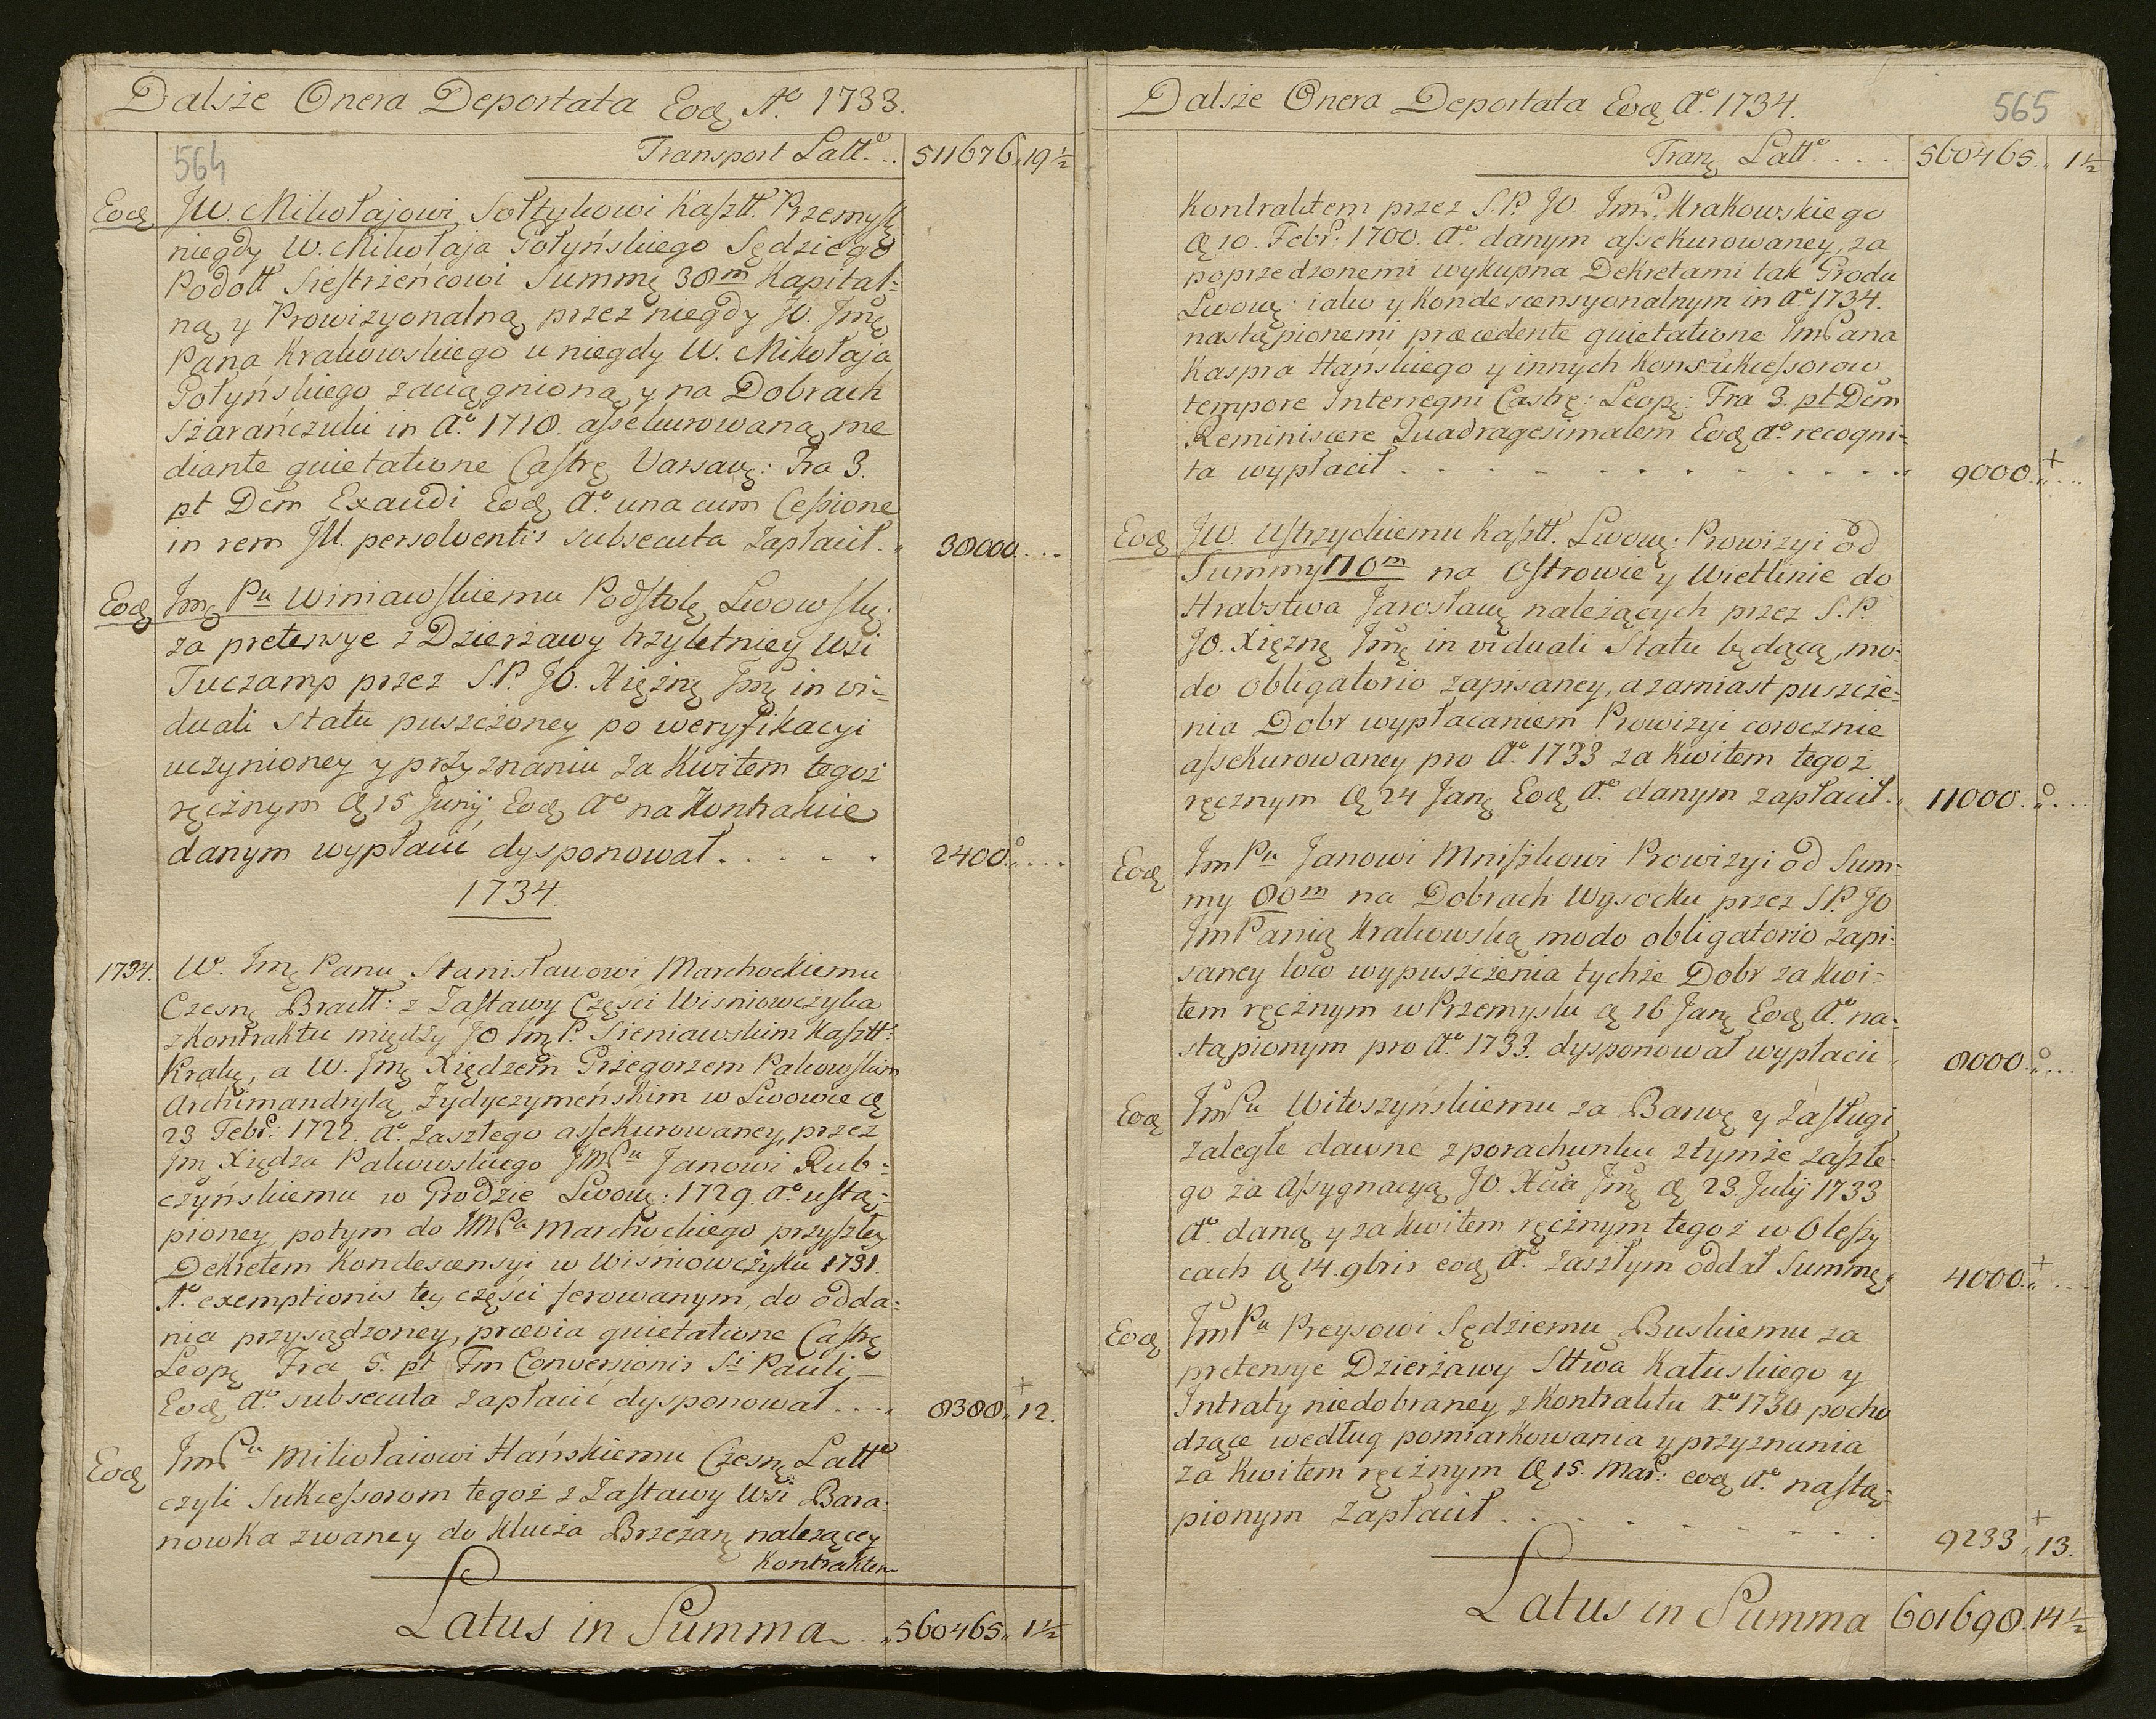 Dalsze Onera Deportata Eodę Aº 1733.
564
Transport Lattº .. 511676 „ 19½
Eodę JW. Mikołajowi Sołtykowi Kasztt. Przemysę
niegdy W. Mikołaja Gołyńskiego Sędziego
Podoll Siestrzeńcowi Summę 38m Kapital-
ną y Prowizyonalną przez niegdy JO. Jmę
Pana Krakowskiego u niegdy W. Mikołaja
Gołyńskiego zaciągnioną y na Dobrach
Szarańczuki in Aº 1718. assekurowaną me
diante quietatione Castrę Varsavę: Fra 3.
pt Dcm Exaudi Eodę Aº una cum Cessione
in rem JW. persolventis subsecuta zapłacił. „ 38000. ...
Eodę Jmę Pu Winiawskiemu Podstolę Lwowskę:
za pretensye z Dzierżawy trzyletniey Wsi
Tuczamp przez S.P. JO. Xiężnę Jmę in vi-
duali Statu puszczoney po weryfikacyi
uczynioney y przyznaniu za Kwitem tegoż
ręcznym dę 15 Junij Eodę Aº na Kontrakcie
danym wypłacić dysponował . . . . . 2400. „ ...
1734.
1734. W. Jmę Panu Stanisławowi Marchockiemu
Czesnę Bractt: z Zastawy Części Wisniowczyka
z Kontraktu między JO JmęP. Sieniawskim Kasztt:
Krakę, a W. Jmę Xiędzem Grzegorzem Pakowskim
Archimandrytą Żydyczymeńskim w Lwowie dę
23 Febr: 1722. Aº zaszłego assekurowaney, przez
Jm Xiędza Pakowskiego JMPu Janowi Rub-
czyńskiemu w Grodzie Lwowę: 1729. Aº ustą-
pioney, potym do JMPa Marchockiego przyszłey
Dekretem Kondescensyi w Wisniowczyku 1731.
Aº exemptionis tey części ferowanym, do odda-
nia przysądzoney, prævia quietatione Castrę
Leopę Fra 5. pt Fm Conversionis Sti Pauli
Eodę Aº subsecuta zapłacić dysponował ... „ 8388 „ 12.
Eodę JmPu Mikołaiowi Hańskiemu Czesnę Lattº
czyli Sukcessorom tegoż z Zastawy Wsi Bara-
nowka zwaney do Klucza Brzeżanę należącey
Kontraktem
Latus in Summa . „ 560465 „ 1½
Dalsze Onera Deportata Eodę Aº 1734.
565
Tranę Lattº . . . . 560465. „ 1½
Kontraktem przez S.P. JO. JmP. Krakowskiego
dę 10. Febr: 1700. Aº danym assekurowaney, za
poprzedzonemi wykupna Dekretami tak Grodu
Lwowę: iako y Kondescensyonalnym in Aº 1734.
nastąpionemi præcedente quietatione JmPana
Kaspra Hańskiego y innych Konsukcessorow
tempore Interregni Castrę: Leopę: Fra 3. pt Dcm
Reminiscere Quadragesimalem Eodę Aº recogni-
ta wypłacił . . . . . . . . . . . . 9000. „ ...
Eodę JW. Ustrzyckiemu Kasztt. Lwowę: Prowizyi od
Summy 110m na Ostrowie y Wietlinie do
Hrabstwa Jarosławę należących przez S.P.
JO. Xiężnę Jmę in viduali Statu będącą, mo-
do obligatorio zapisaney, a zamiast puszcze-
nia Dobr wypłacaniem Prowizyi corocznie
assekurowaney pro Aº 1733 za Kwitem tegoż
ręcznym dę 24 Janę Eodę Aº danym zapłacił . „ 11000. „ ...
Eodę JmPu Janowi Mniszkowi Prowizyi od Sum-
my 80m na Dobrach Wysocku przez S.P. JO
JmPanią Krakowską modo obligatorio zapi-
saney loco wypuszczenia tychże Dobr za Kwi-
tem ręcznym w Przemyslu dę 16 Janę Eodę Aº na-
stąpionym pro Aº 1733. dysponował wypłacić „ 8000. „ ...
Eodę JmPu Witoszyńskiemu za Barwę y Zasługi
zaległe dawne z porachunku z tymże zaszłe-
go za Assygnacyą JO. Xcia Jmę dę 23. Julij 1733
Aº daną y za Kwitem ręcznym tegoż w Oleszy
cach dę 14. 9bris eodę Aº zaszłym oddał Summę „ 4000. „ ...
Eodę JmPu Preysowi Sędziemu Buskiemu za
pretensye Dzierżawy Sttwa Kałuskiego y
Intraty niedobraney z Kontraktu Aº 1730 pocho
dzące według pomiarkowania y przyznania
za Kwitem ręcznym dę 15. Mar: eodę Aº nastą-
pionym zapłacił . . . . . . . . . 9233 „ 13.
Latus in Summa 601698. 14½